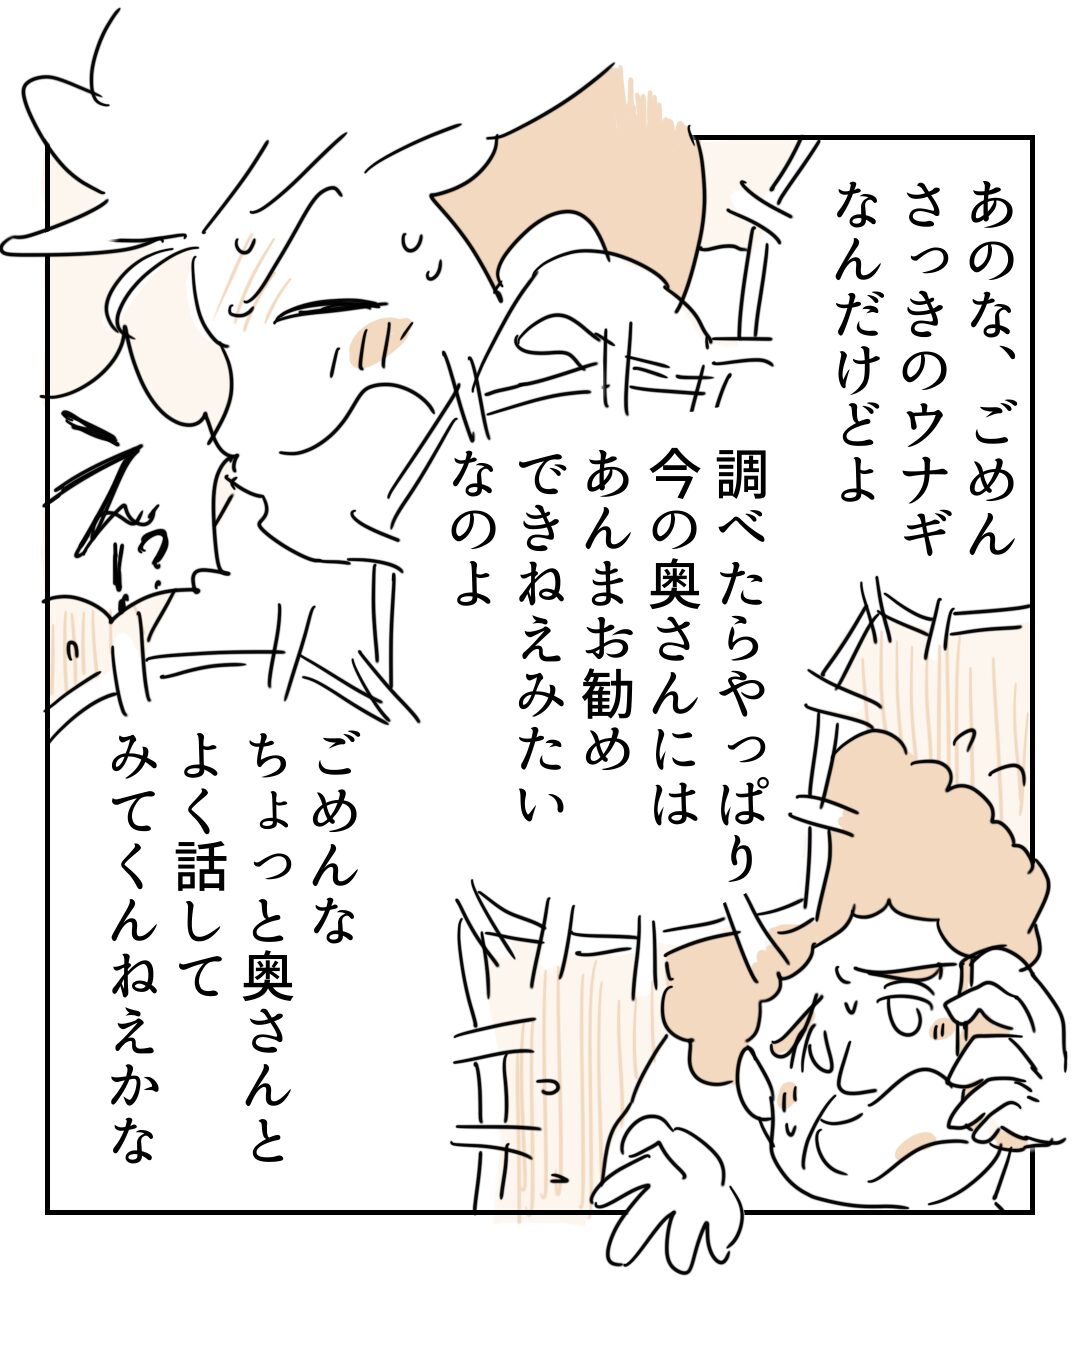 あのな、ごめん
さっきのウナギ
なんだけどよ
調べたらやっぱり
今の奥さんには
あんまお勧め
できねえみたい
なのよ
えっ!?
ごめんな
ちょっと奥さんと
よく話して
みてくんねえかな